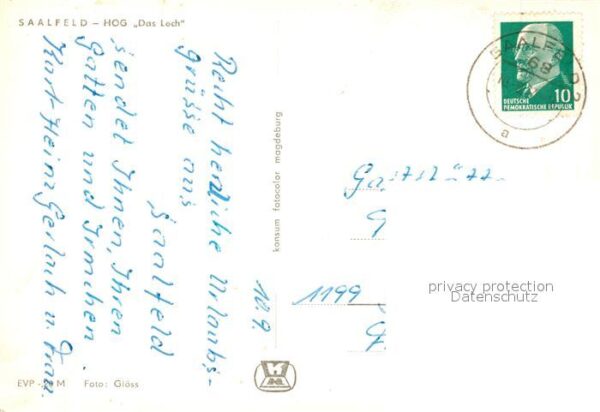 SAALFELD – HOG „Das Loch"
Recht herzliche Urlaubs-
grüsse aus
Saalfeld
sendet Ihnen, Ihren
Gatten und Irmchen
Kurt-Heinz Gerlach u. Frau.
10.9.
EVP - M Foto: Gläss
konsum fotocolor magdeburg
SAALFELD
68
a
10
DEUTSCHE
DEMOKRATISCHE REPUBLIK
1199
privacy protection
Datenschutz